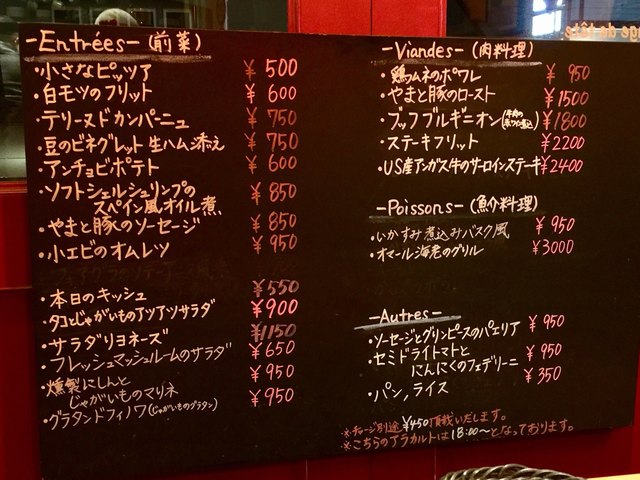 -Entrées- (前菜)
・小さなピッツァ ¥500
・白モツのフリット ¥600
・テリーヌドカンパーニュ ¥750
・豆のビネグレット 生ハム添え ¥750
・アンチョビポテト ¥600
・ソフトシェルシュリンプの
スペイン風オイル煮 ¥850
・やまと豚のソーセージ ¥850
・小エビのオムレツ ¥950
・本日のキッシュ ¥550
・タコとじゃがいものアツアツサラダ ¥900
・サラダリヨネーズ ¥1150
・フレッシュマッシュルームのサラダ ¥650
・燻製にしんと
じゃがいものマリネ ¥950
・グラタンドフィノワ(じゃがいものグラタン) ¥950
-Viandes- (肉料理)
・鶏ムネのポワレ ¥950
・やまと豚のロースト ¥1500
・ブッフブルギニオン(牛肉の赤ワイン煮込) ¥1800
・ステーキフリット ¥2200
・US産アンガス牛のサーロインステーキ ¥2400
-Poissons- (魚介料理)
・いかすみ煮込みバスク風 ¥950
・オマール海老のグリル ¥3000
-Autres-
・ソーセージとグリンピースのパエリア ¥950
・セミドライトマトと
にんにくのフェデリーニ ¥950
・パン,ライス ¥350
※チャージ別途 ¥450頂戴いたします。
※こちらのアラカルトは18:00〜となっております。